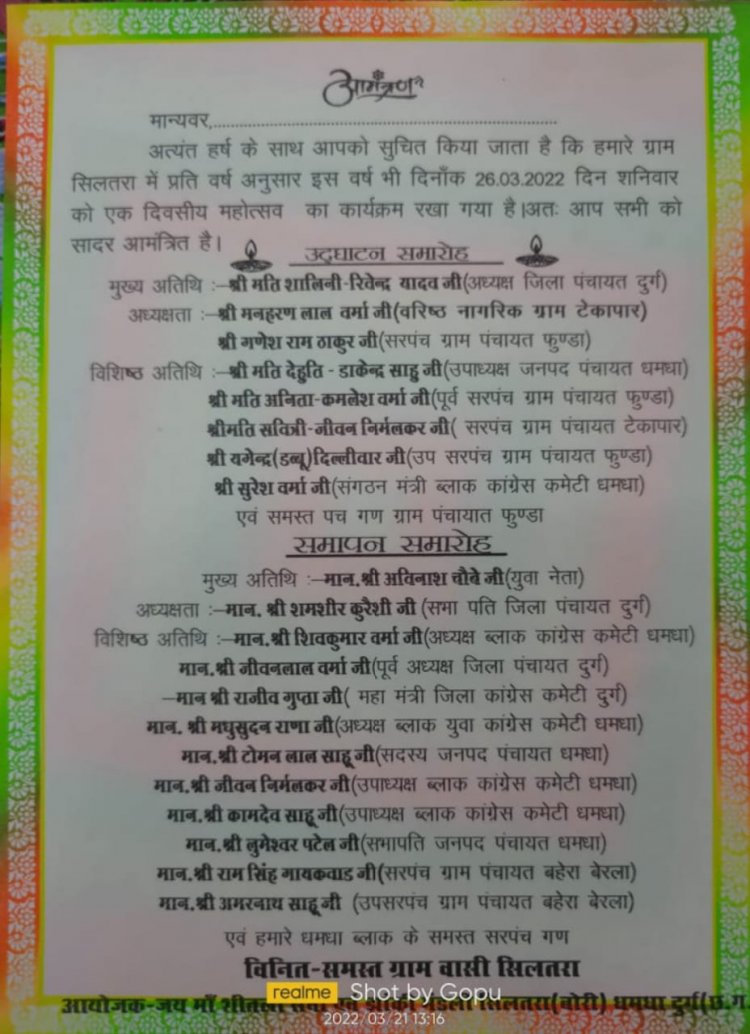 आमंत्रण
मान्यवर,............................................................
अत्यंत हर्ष के साथ आपको सुचित किया जाता है कि हमारे ग्राम
सिलतरा में प्रति वर्ष अनुसार इस वर्ष भी दिनाँक 26.03.2022 दिन शनिवार
को एक दिवसीय महोत्सव का कार्यक्रम रखा गया है।अतः आप सभी को
सादर आमंत्रित है।
उद्घाटन समारोह
मुख्य अतिथि :–श्री मति शालिनी-रिवेन्द्र यादव जी(अध्यक्ष जिला पंचायत दुर्ग)
अध्यक्षता :–श्री मनहरण लाल वर्मा जी(वरिष्ठ नागरिक ग्राम टेकापार)
श्री गणेश राम ठाकुर जी(सरपंच ग्राम पंचायत फुण्डा)
विशिष्ठ अतिथि :–श्री मति देहुति - डाकेन्द्र साहु जी(उपाध्यक्ष जनपद पंचायत धमधा)
श्री मति अनिता-कमलेश वर्मा जी(पूर्व सरपंच ग्राम पंचायत फुण्डा)
श्रीमति सवित्री-जीवन निर्मलकर जी( सरपंच ग्राम पंचायत टेकापार)
श्री यगेन्द्र(डब्बू)दिल्लीवार जी(उप सरपंच ग्राम पंचायत फुण्डा)
श्री सुरेश वर्मा जी(संगठन मंत्री ब्लाक कांग्रेस कमेटी धमधा)
एवं समस्त पच गण ग्राम पंचायात फुण्डा
समापन समारोह
मुख्य अतिथि :–मान.श्री अविनाश चौबे जी(युवा नेता)
अध्यक्षता :–मान. श्री शमशीर कुरैशी जी (सभा पति जिला पंचायत दुर्ग)
विशिष्ठ अतिथि :–मान.श्री शिवकुमार वर्मा जी(अध्यक्ष ब्लाक कांग्रेस कमेटी धमधा)
मान.श्री जीवनलाल वर्मा जी(पूर्व अध्यक्ष जिला पंचायत दुर्ग)
–मान श्री राजीव गुप्ता जी( महा मंत्री जिला कांग्रेस कमेटी दुर्ग)
मान. श्री मधुसुदन राणा जी(अध्यक्ष ब्लाक युवा कांग्रेस कमेटी धमधा)
मान.श्री टोमन लाल साहू जी(सदस्य जनपद पंचायत धमधा)
मान.श्री जीवन निर्मलकर जी(उपाध्यक्ष ब्लाक कांग्रेस कमेटी धमधा)
मान.श्री कामदेव साहू जी(उपाध्यक्ष ब्लाक कांग्रेस कमेटी धमधा)
मान.श्री लुमेश्वर पटेल जी(सभापति जनपद पंचायत धमधा)
मान.श्री राम सिंह गायकवाड जी(सरपंच ग्राम पंचायत बहेरा बेरला)
मान.श्री अमरनाथ साहू जी (उपसरपंच ग्राम पंचायत बहेरा बेरला)
एवं हमारे धमधा ब्लाक के समस्त सरपंच गण
विनित-समस्त ग्राम वासी सिलतरा
आयोजक-जय माँ शीतला सिलतरा(बोरी) धमधा दुर्ग(छ.ग
realme Shot by Gopu
2022/03/21 13:16